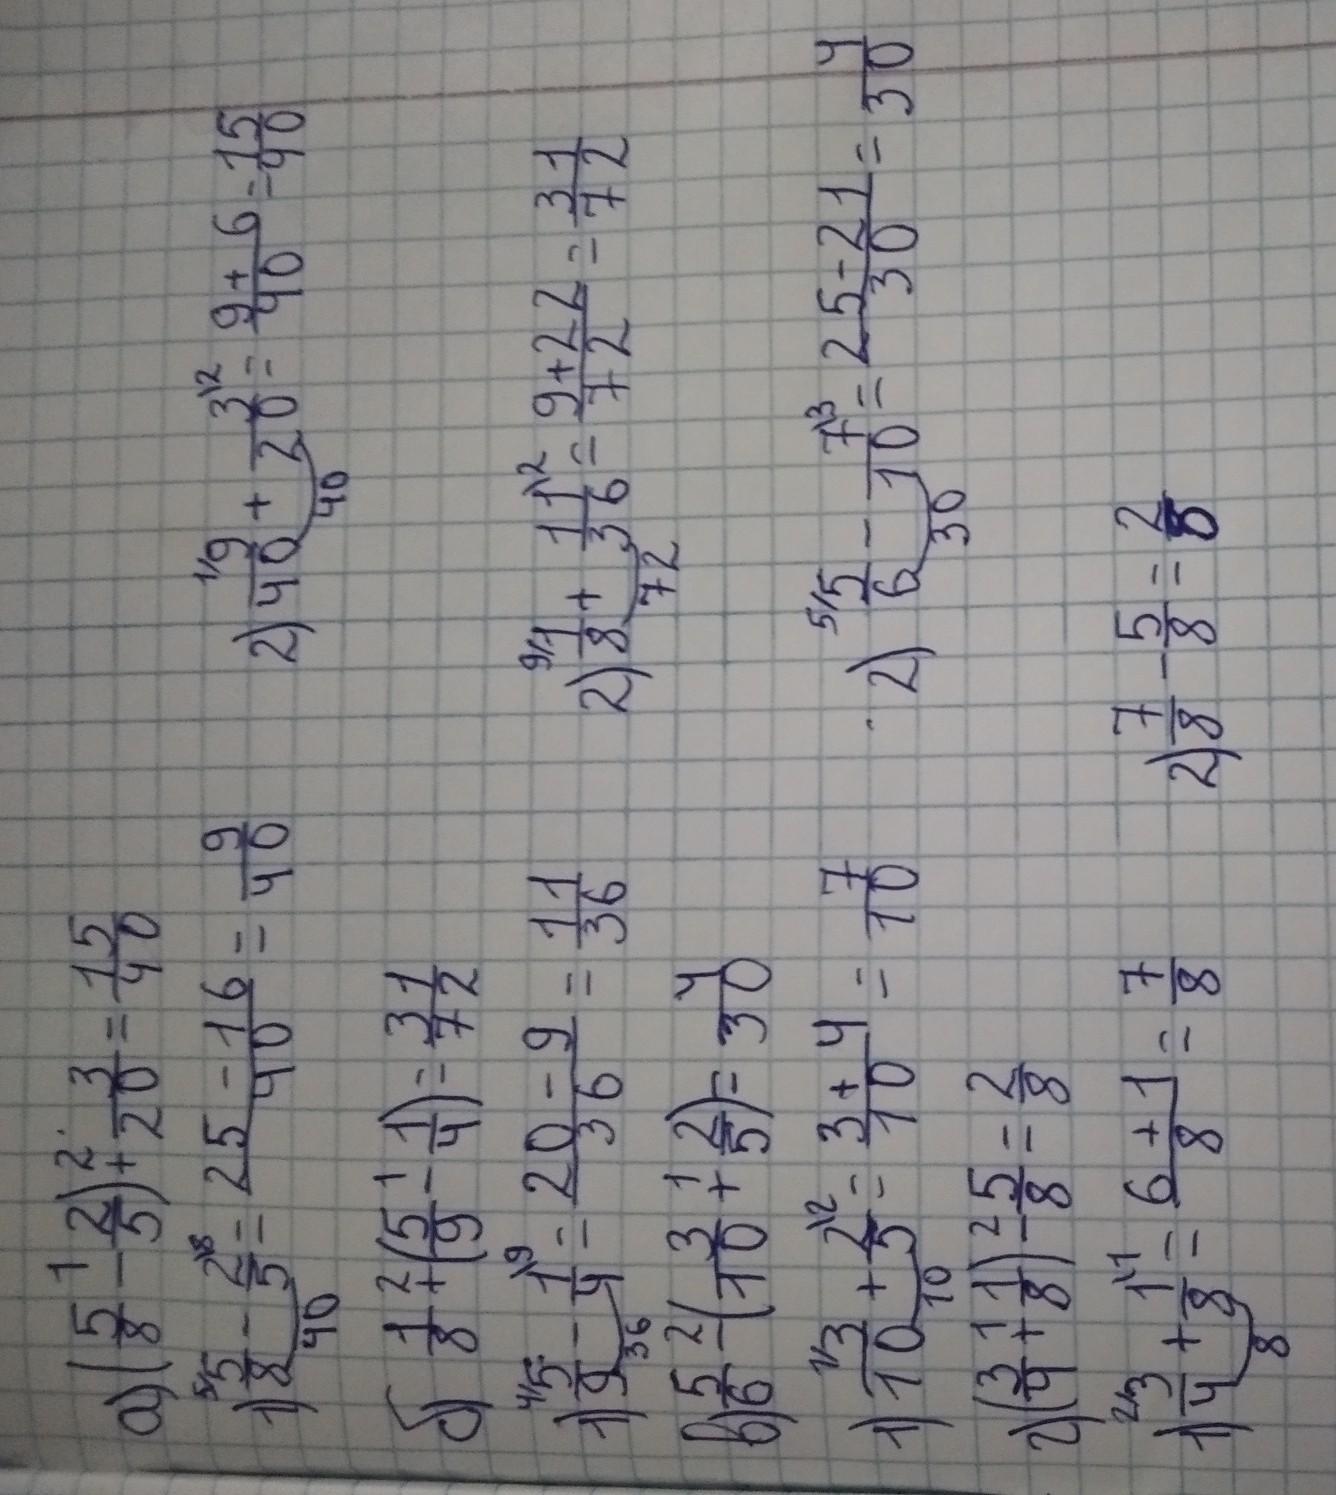 а) (5/8 - 2/5) + 3/20 = 15/40
1) 5/8 - 2/5 = 25-16/40 = 9/40 2) 9/40 + 3/20 = 9+6/40 = 15/40
б) 1/8 + (5/9 - 1/4) = 31/72
1) 5/9 - 1/4 = 20-9/36 = 11/36 2) 1/8 + 11/36 = 9+22/72 = 31/72
в) 5/6 - (3/10 + 2/5) = 4/30
1) 3/10 + 2/5 = 3+4/10 = 7/10 2) 5/6 - 7/10 = 25-21/30 = 4/30
г) (3/4 + 1/8) - 5/8 = 2/8
1) 3/4 + 1/8 = 6+1/8 = 7/8 2) 7/8 - 5/8 = 2/8